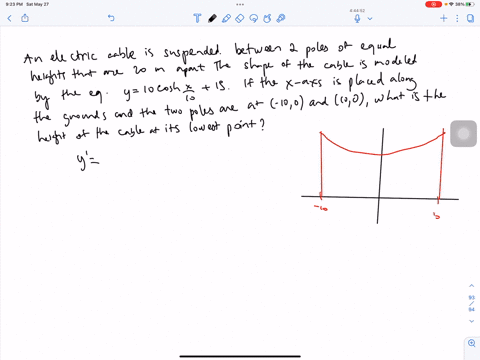 9:23 PM Sat May 27
8:44:52
38%
An electric cable is suspended between 2 poles of equal
heights that are 20 m apart. The shape of the cable is modeled
by the eq. y = 10 cosh x/10 + 15. If the x-axs is placed along
the grounds and the two poles are at (-10,0) and (10,0), what is the
height of the cable at its lowest point?
y' =
-10
93
/
94